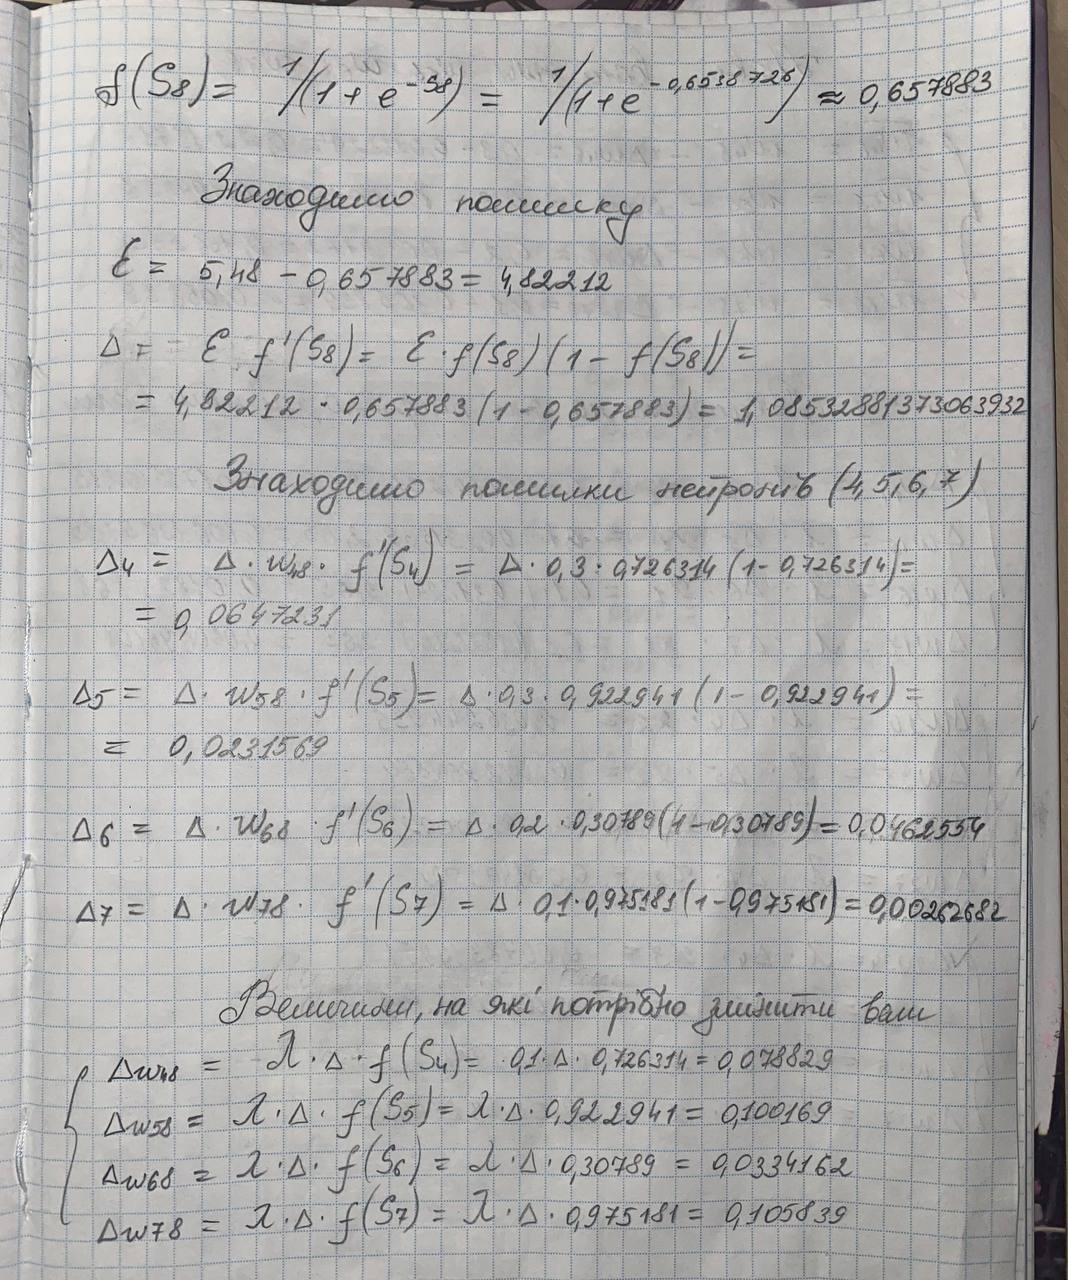 f(S8) = 1/(1 + e^-S8) = 1/(1+e^-0,6538726) ≈ 0,657883
Знаходимо помилку
ε = 5,48 - 0,657883 = 4,82212
Δ = ε f'(S8) = ε · f(S8) (1 - f(S8)) =
= 4,82212 · 0,657883 (1 - 0,657883) = 1,08532881373063932
Знаходимо помилки нейронів (4,5,6,7)
Δ4 = Δ · w48 · f'(S4) = Δ · 0,3 · 0,726314 (1 - 0,726314) =
= 0,0647231
Δ5 = Δ · w58 · f'(S5) = Δ · 0,3 · 0,922941 (1 - 0,922941) =
= 0,0231569
Δ6 = Δ · w68 · f'(S6) = Δ · 0,2 · 0,30789 (1 - 0,30789) = 0,0462554
Δ7 = Δ · w78 · f'(S7) = Δ · 0,1 · 0,975181 (1 - 0,975181) = 0,00262682
Величини, на які потрібно змінити ваги
Δw48 = λ · Δ · f(S4) = 0,1 · Δ · 0,726314 = 0,078829
Δw58 = λ · Δ · f(S5) = λ · Δ · 0,922941 = 0,100169
Δw68 = λ · Δ · f(S6) = λ · Δ · 0,30789 = 0,0334162
Δw78 = λ · Δ · f(S7) = λ · Δ · 0,975181 = 0,105839